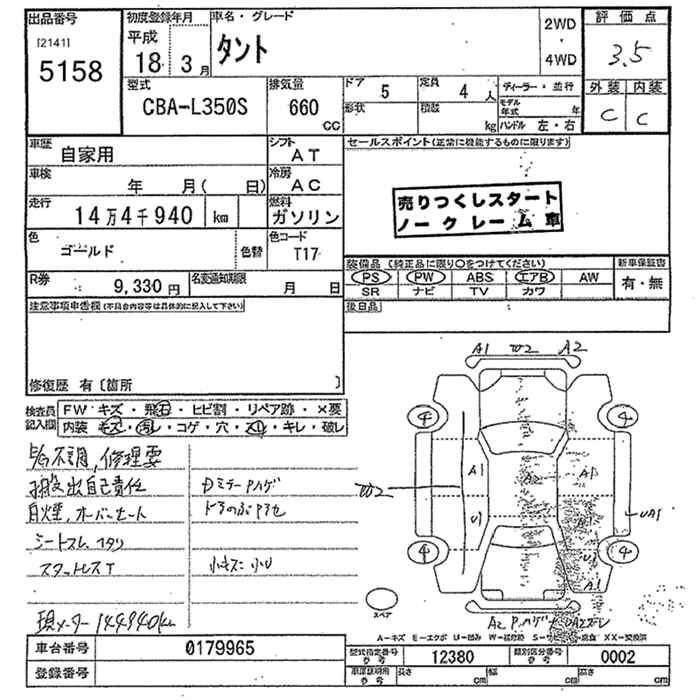 出品番号 初度登録年月 車名・グレード 2WD 評価点
[2141] 平成 タント ・ 3.5
5158 18 3月 4WD
型式 排気量 ドア 5 定員 4人 ディーラー・並行 外装 内装
CBA-L350S 660 CC 形状 積載 kg モデル年式 年 C C
ハンドル 左・右
車歴 自家用 シフト AT セールスポイント(正常に機能するものに限ります)
車検 年 月( 日) 冷房 AC
走行 14万4千940 km 燃料 ガソリン
売りつくしスタート
ノークレーム車
色 ゴールド 色替 色コード T17
装備品 (純正品に限り○をつけてください) 新車保証書
R券 9,330円 名変通知期限 月 日
PS PW ABS エアB AW 有・無
SR ナビ TV カワ
注意事項申告欄(不具合内容等は具体的に記入して下さい) 後日品
修復歴 有〔箇所 〕
検査員記入欄 FW キズ・飛石・ヒビ割・リペア跡・×要
内装 キズ・汚レ・コゲ・穴・スレ・キレ・破レ
不調,修理要
搬出自己責任 Dミラーアハゲ
白煙,オーバーヒート
シートスレ
スタットレスT 小キズ 小U
現メーター 144940km
A1 W2 A2
4 4
A1 A1
W2
U1 UA1
4 4
A1
スペア
A2
A-キズ E-エクボ U-凹み W-補修跡 XX-交換済
車台番号 0179965
型式指定番号 参考 12380 類別区分番号 参考 0002
登録番号
車庫証明用 参考 長さ cm 幅 cm 高さ cm